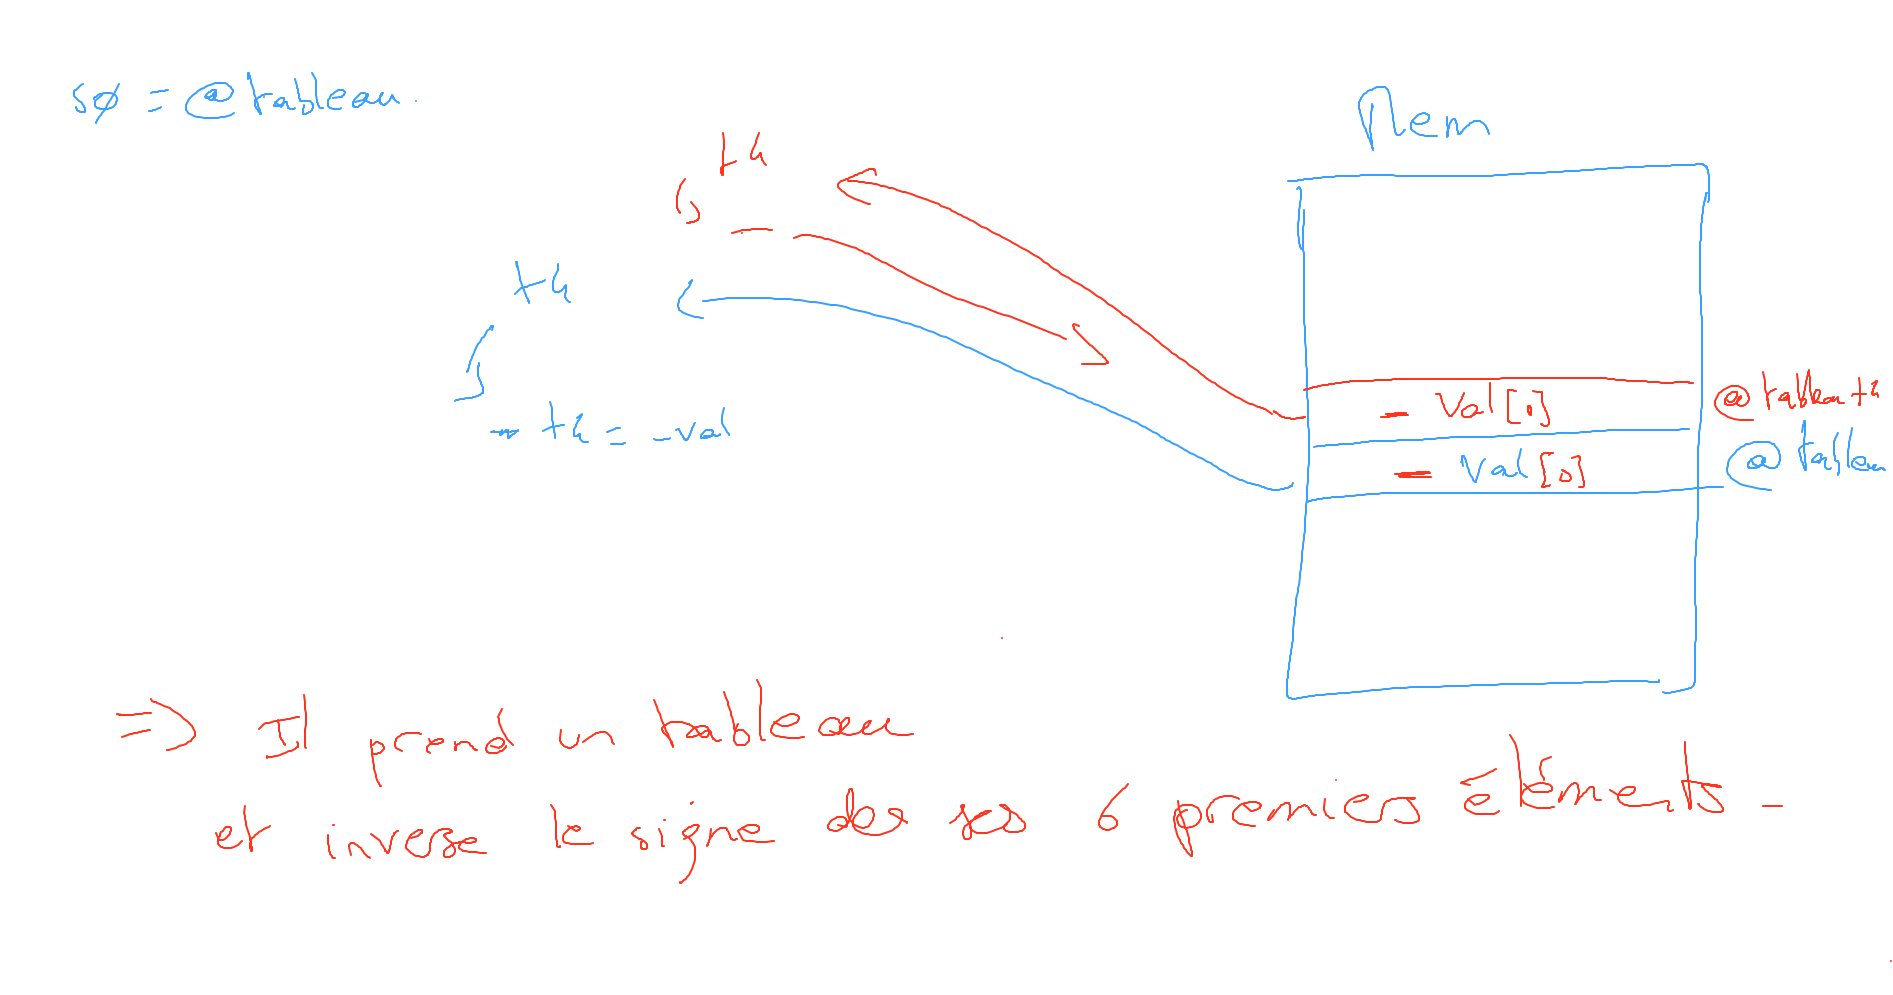 s0 = @ tableau.
Mem
t4
t4
→ t4 = -val
- Val[1]
@ tableau+4
- Val[0]
@ tableau
=> Il prend un tableau
et inverse le signe des ses 6 premiers éléments -